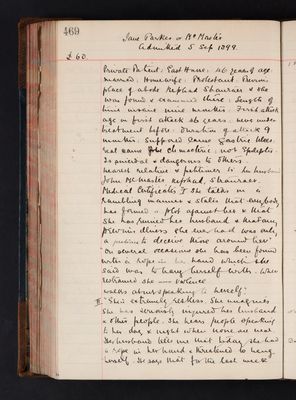 469
Jane Parkes or McMaster
Admitted 5 Sep 1899.
£60
Private Patient: East House: 46 years of age.
married: Housewife: Protestant. Previous
place of abode Kephad Strauraer & she
was found & examined there: Length of
time insane nine months: First attack
age on first attack 46 years: never under
treatment before: Duration of attack 9
months: Supposed cause Gastric ulcer.
climacteric; not Epileptic.
Is suicidal & dangerous to others.
nearest relative & petitioner is her husband
John McMaster Kephad, Stranraer
Medical Certificates I She talks in a
rambling manner & states that everybody
has formed a plot against her & that
She has ruined her husband & that any
previous illness she ever had was only
a to deceive those around her"
On several occasions she has been found
with a rope in her hand which she
said was to hang herself with. When
restrained she violence
walks about speaking to herself."
II "She is extremely restless. She imagines
She has seriously injured her husband
& other people. She hears people speaking
to her day & night when none are near
Her husband tells me that today she had
a rope in her hand & threatened to hang
herself. He says that for the last week